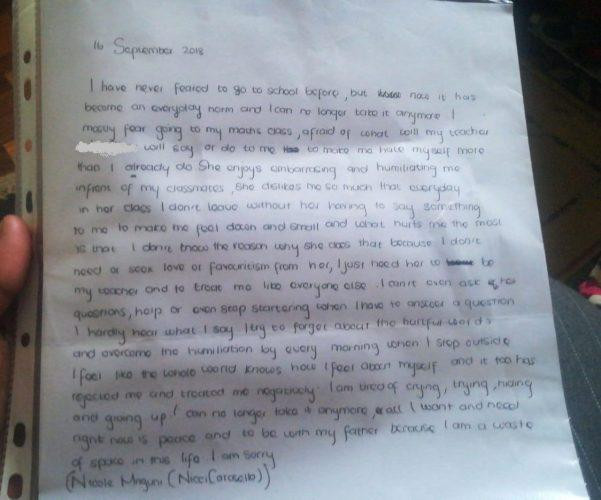 16 September 2018
I have never feared to go to school before, but now it has
become an everyday norm and I can no longer take it anymore I
fear going to my maths class, afraid of what will my teacher
will say or do to me to make me hate myself more
than I already do She enjoys embarrassing and humiliating me
infront of my classmates, she dislikes me so much that everyday
in her class I don't leave without her having to say something
to me to make me feel down and small and what hurts me the most
is that I don't know the reason why she does that because I don't
need or seek love or favouritism from her, I just need her to be
my teacher and to treat me like everyone else. I can't even ask her
questions, help or even stop startering when I have to answer a question
I hardly hear what I say I try to forget about the hurtful words
and overcome the humiliation by every morning when I step outside
I feel like the whole world knows how I feel about myself and it too has
rejected me and treated me negatively. I am tired of crying, trying, hiding
and giving up. I can no longer take it anymore, all I want and need
right now is peace and to be with my father because I am a waste
of space in this life I am sorry
(Nicole Mnguni